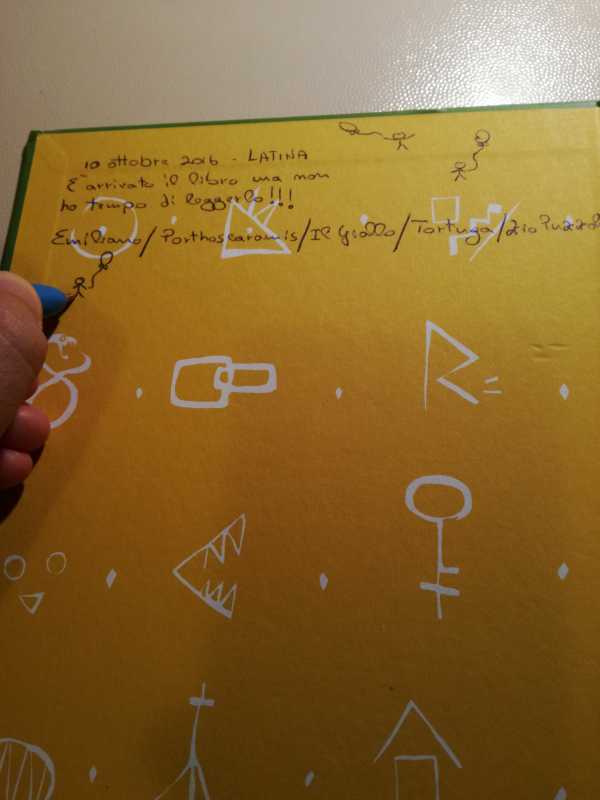 10 ottobre 2016 - LATINA
E' arrivato il libro ma non
ho tempo di leggerlo!!!
Emiliano/Porthosearamis/Il Giallo/Tortuga/Zio